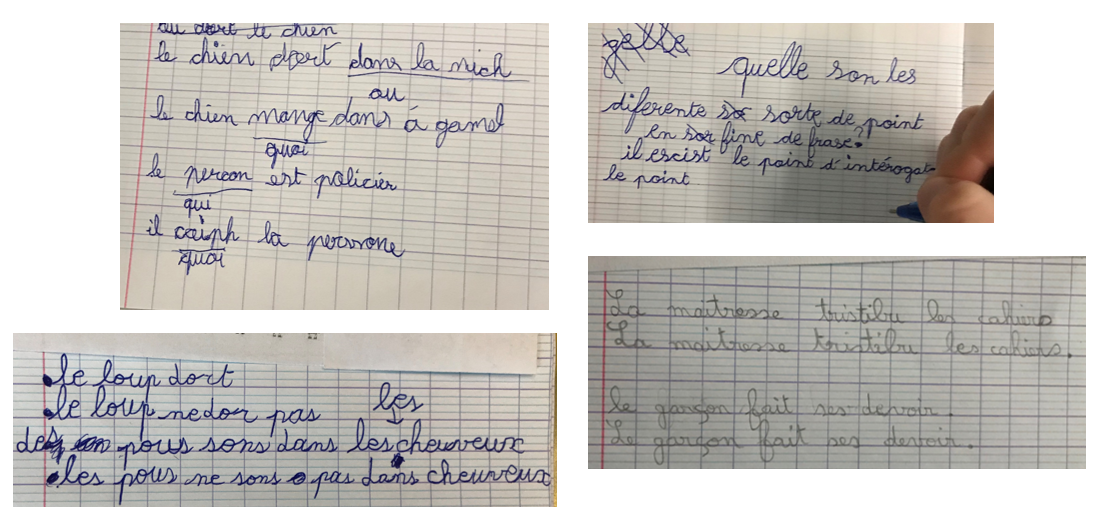 ou dort le chien
le chien dort dans la nich
ou
le chien mange dans á gamel
quoi
le person est policier
qui
il la persone
quoi
quelle son les
diferente sorte de point
en fine de frase?
il escist le point d'intérogat
le point
La maitresse tristibu les cahiers
La maitresse tristibu les cahiers.
le garçon fait ses devoir.
Le garçon fait ses devoir.
le loup dort
le loup nedor pas
les
des pous sons dans les cheuveux
les pous ne sons pas dans cheuveux